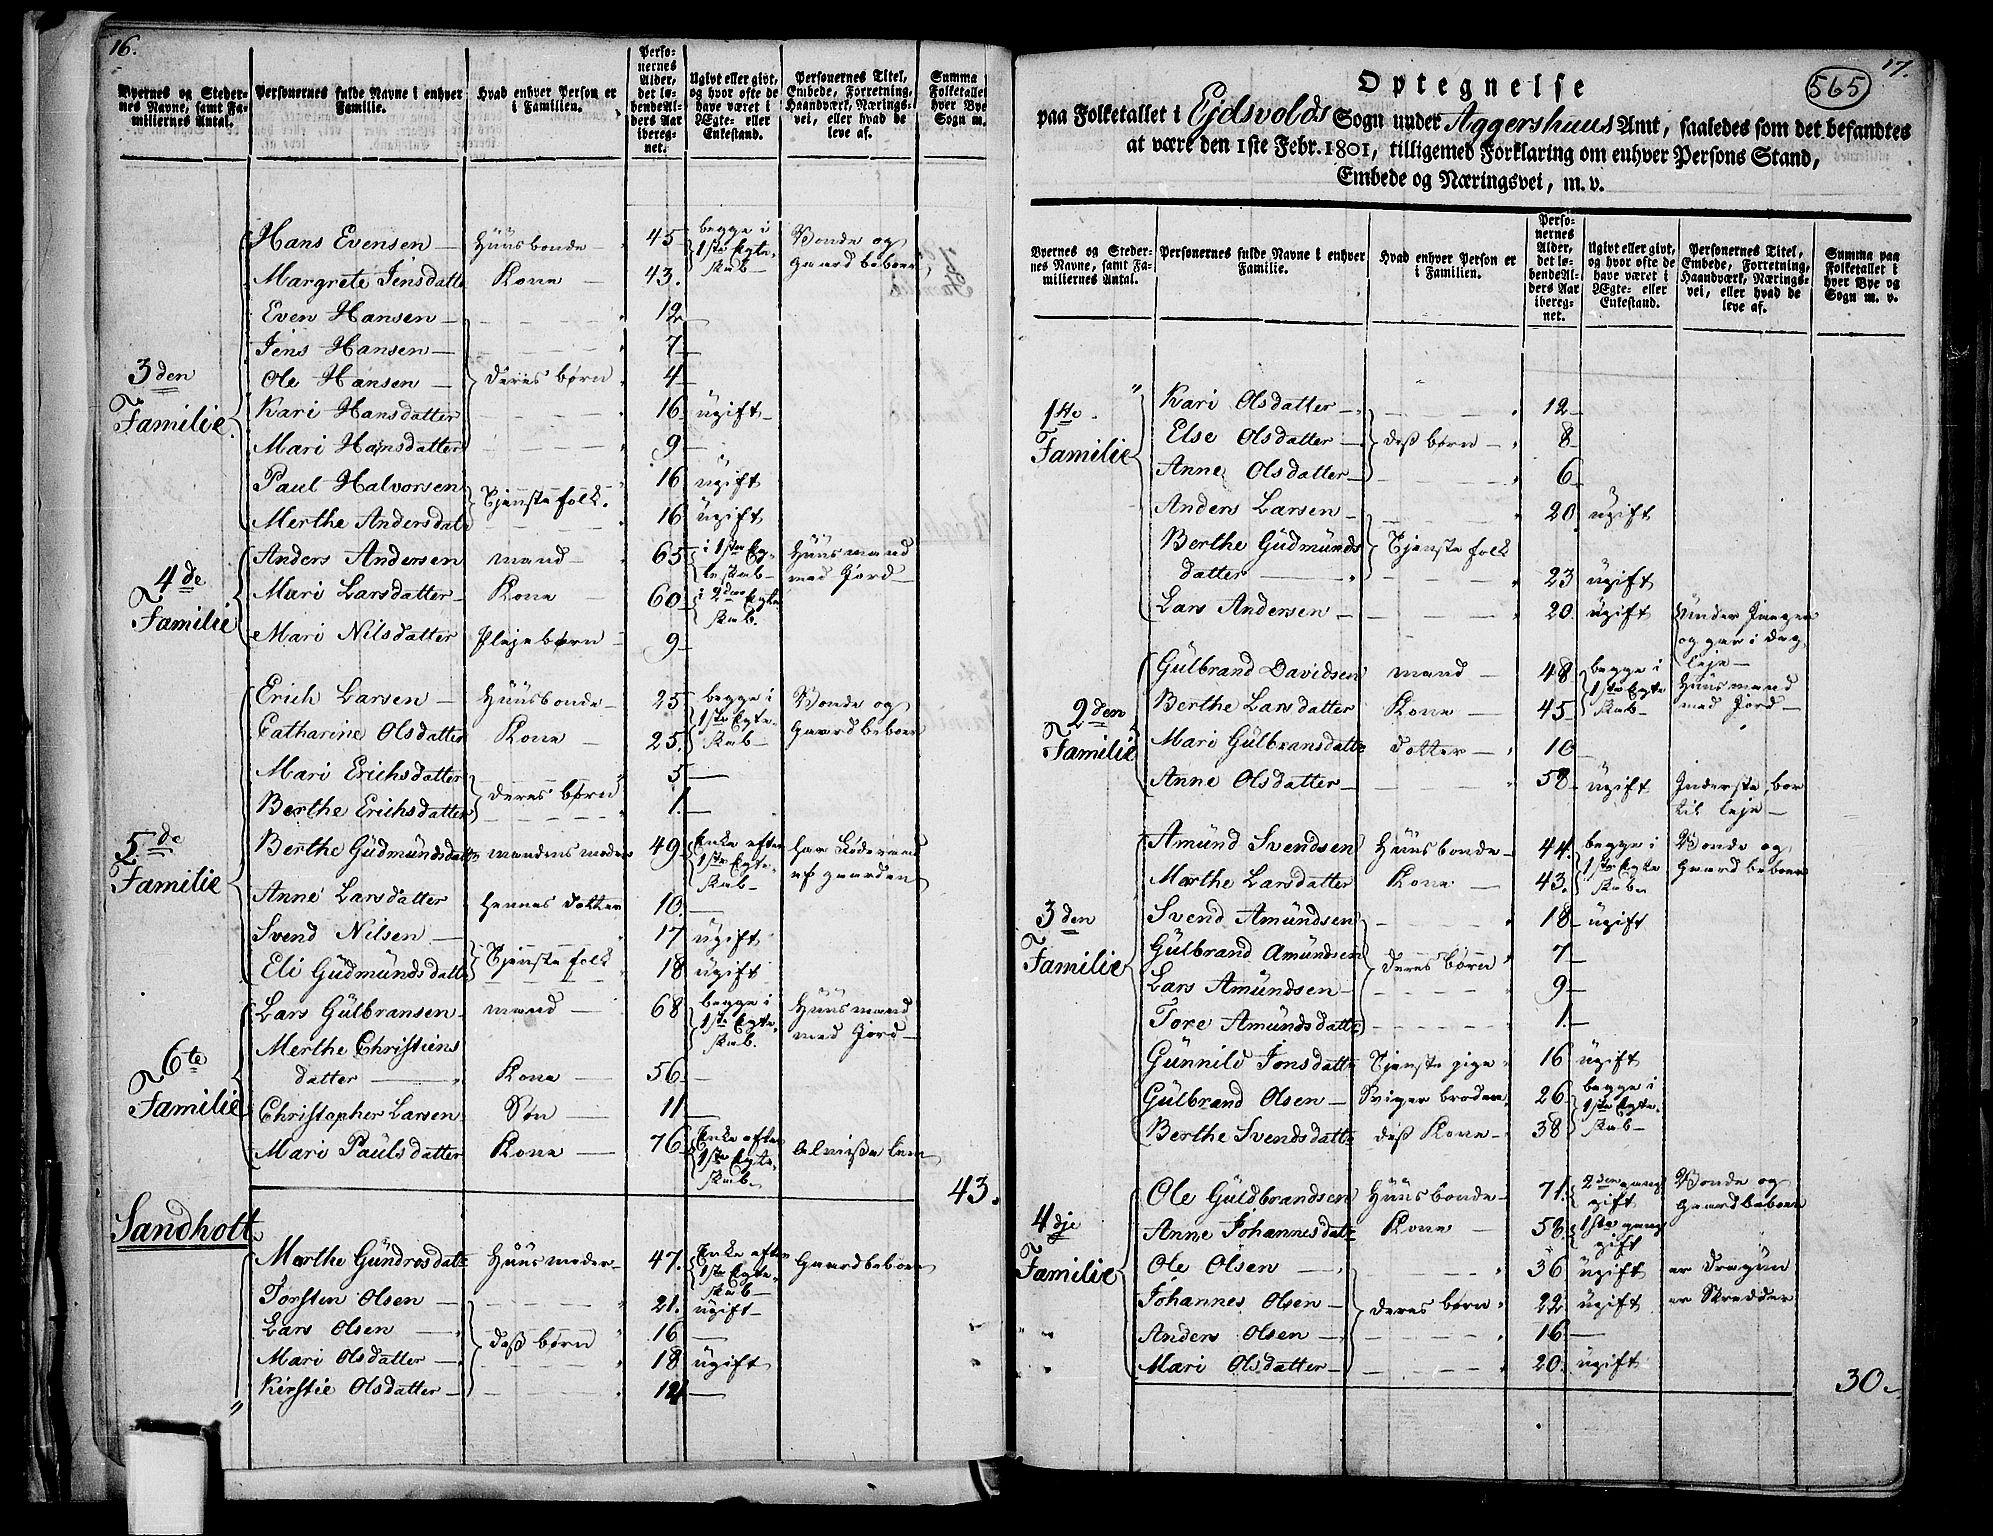 16.
Byernes og Steder-
nes Navne, samt Fa-
miliernes Antal.
Personernes fulde Navne i enhver
Familie.
Hvad enhver Person er
i Familien.
Perso-
nernes
Alder,
det lø-
bende Al-
ders Aar
ibereg-
net.
Ugivt eller givt,
og hvor ofte de
have været i
Ægte- eller
Enkestand.
Personernes Titel,
Embede, Forretning,
Haandværk, Nærings-
vei, eller hvad de
leve af.
Summa
Folketallet
hver Bye
Sogn m.
3den Familie
Hans Evensen — Huusbonde — 45 begge i 1ste Egte-skab — Bonde og Gaardbeboer
Margrete Jensdatt: Kone — 43.
Even Hansen — 12
Jens Hansen — 7—
Ole Hansen — deres børn 4—
Kari Hansdatter 16 ugift—
Mari Hansdatter 9—
Paul Halvorsen Tjenstefolk. 16 ugift
Merthe Andersdat: 16 ugift
4de Familie
Anders Andersen mand — 65 i 1ste Eg-teskab — Huusmand med Jord—
Mari Larsdatter — Kone — 60 i 2den Egte skab.
Mari Nilsdatter Plejebørn — 9—
5de Familie
Erich Larsen — Huusbonde — 25 begge i 1ste Egte-skab — Bonde og Gaardbeboer
Catharine Olsdatter Kone — 25.
Mari Erichsdatter deres børn 5—
Berthe Erichsdatter 1.—
Berthe Gudmundsdatt: mandens moder 49 Enke efter 1ste Egte-skab — har Føderaad af gaarden
Anne Larsdatter Hennes dotter 10.—
Svend Nilsen — Tjenstefolk 17 ugift
Eli Gudmundsdatt: 18 ugift
6te Familie
Lars Gulbransen — mand — 68 begge i 1ste Egte-skab. Huusmand med Jord—
Merthe Christiens
datter — Kone — 56—
Christopher Larsen Søn — 11—
Mari Paulsdatter Kone — 76 Enke efter 1ste Egte-skab — Almisse lem
43.
Sandholt
Merthe Gundrosdat: Huusmoder — 47. Enke efter 1ste Egte-skab — Gaardbeboer
Torsten Olsen — 21. ugift—
Lars Olsen — deß børn 16—
Mari Olsdatter — 18 ugift
Kirstie Olsdatter — 12—
17.
565
Optegnelse
paa Folketallet i Ejdsvolds Sogn under Aggershuus Amt, saaledes som det befandtes
at være den 1ste Febr. 1801, tilligemed Forklaring om enhver Persons Stand,
Embede og Næringsvei, m. v.
Byernes og Steder-
nes Navne, samt Fa-
miliernes Antal.
Personernes fulde Navne i enhver
Familie.
Hvad enhver Person er
i Familien.
Perso-
nernes
Alder,
det lø-
bende Al-
ders Aar
ibereg-
net.
Ugivt eller givt,
og hvor ofte de
have været i
Ægte- eller
Enkestand.
Personernes Titel,
Embede, Forretning,
Haandværk, Nærings-
vei, eller hvad de
leve af.
Summa paa
Folketallet i
hver Bye og
Sogn m. v.
1ste Familie
Kari Olsdatter — 12—
Else Olsdatter — deß børn — 8—
Anne Olsdatter — 6—
Anders Larsen — 20 ugift
Berthe Gudmunds Tjenstefolk
datter — 23 ugift
Lars Andersen — 20. ugift
og gaar i dag leje—
2den Familie
Gulbrand Davidsen mand — 48 begge i 1ste Egte skab — Huusmand med Jord—
Berthe Larsdatter Kone — 45—
Mari Gulbransdatt: dotter — 10
Anne Olsdatter — 58 ugift Inderste, bor til leje—
3den Familie
Amund Svendsen Huusbonde — 44. begge i 1ste Egte skab — Bonde og Gaardbeboer
Merthe Larsdatter Kone — 43.
Svend Amundsen 18 ugift
Gulbrand Amundsen deres børn 7—
Lars Amundsen — 9—
Tore Amundsdatt: 1.—
Gunnild Jonsdatt: Tjenste pige 16 ugift
Gulbrand Olsen — Sviger broder 26 begge i 1ste Egte-skab—
Berthe Svendsdatt: deß Kone — 38
4dje Familie
Ole Guldbrandsen Huusbonde — 71. 2den gang gift Bonde og Gaardbeboer
Anne Johannesdat: Kone — 58. 1ste gang gift
Ole Olsen — 36 ugift er Dragun
Johannes Olsen — deres børn 22 ugift er Skredder
Anders Olsen — 16—
Mari Olsdatter — 20. ugift
30.—